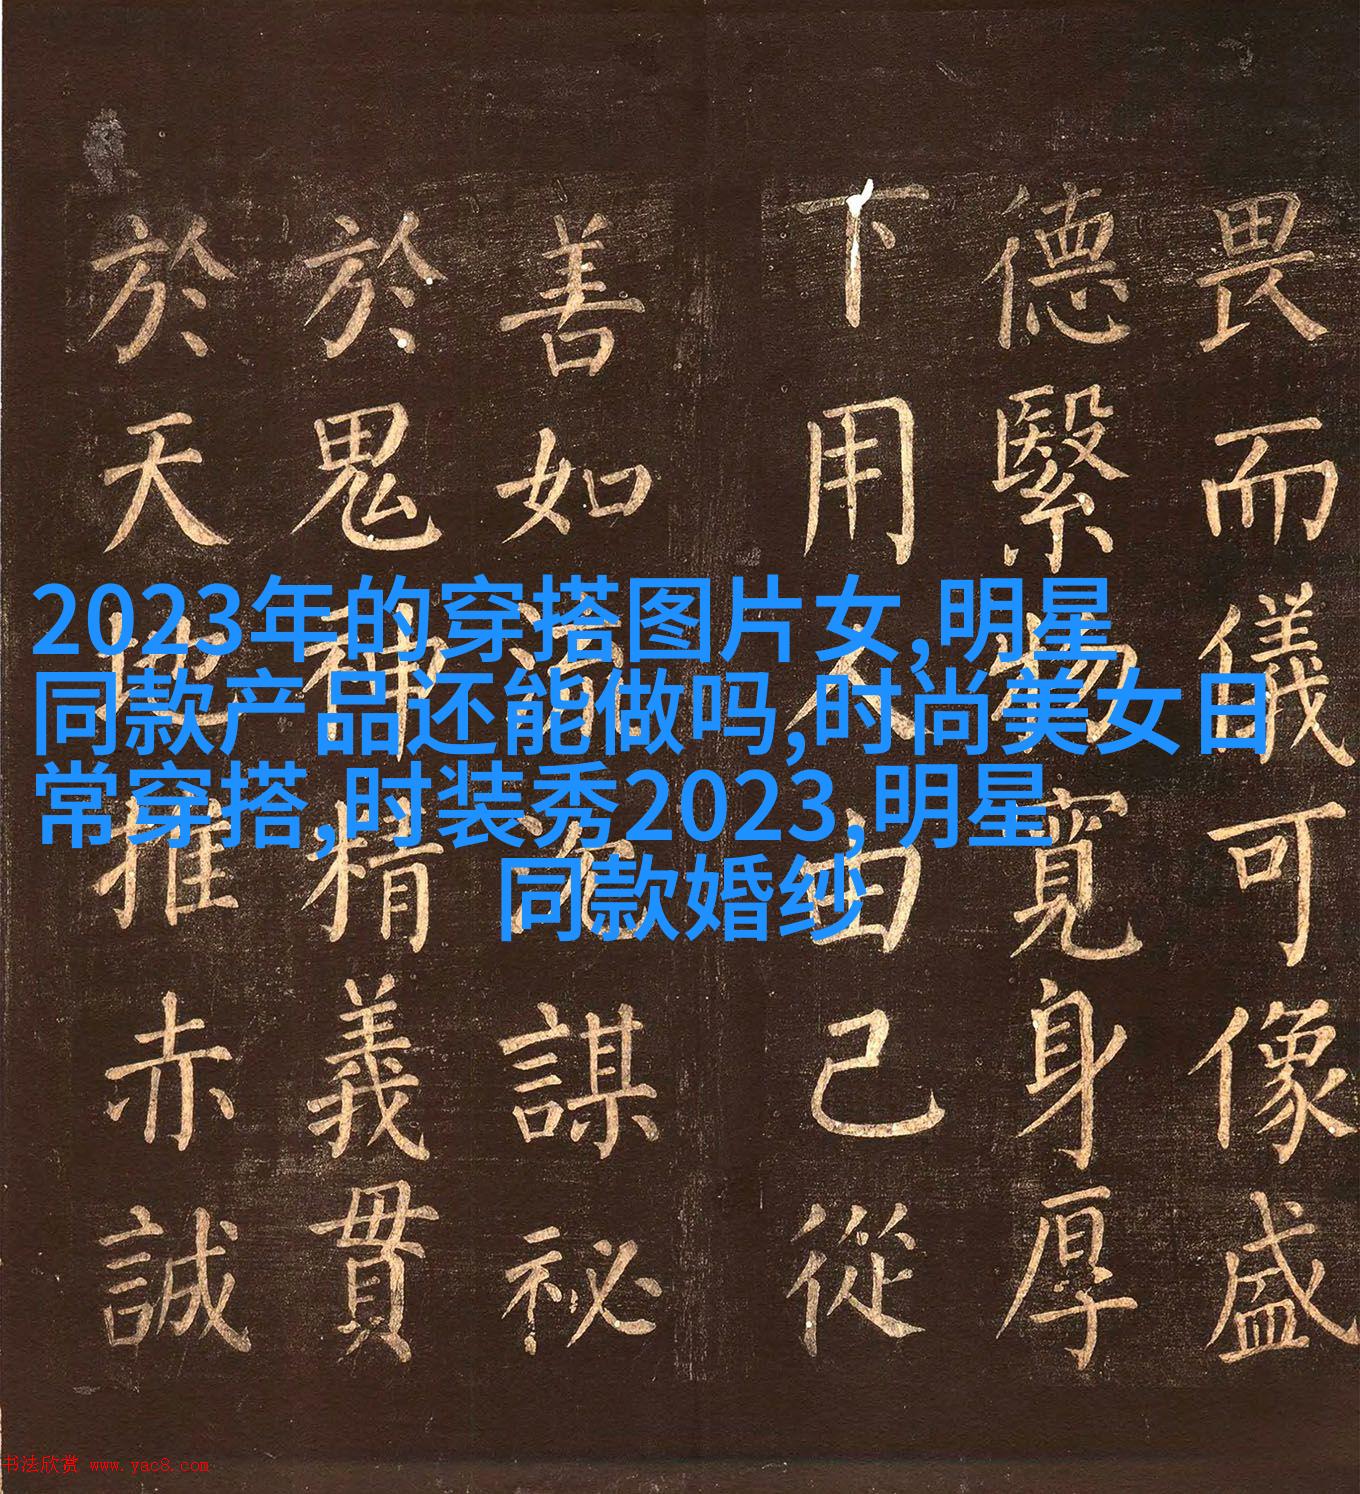 畏而儀可像盛
德繄物寬身厚
下用不由己從
善如流謀祕
於鬼神精義貫
於天地推赤誠
2023年的穿搭图片女,明星
同款产品还能做吗,时尚美女日
常穿搭,时装秀2023,明星
同款婚纱
书法欣赏 www.yac8.com